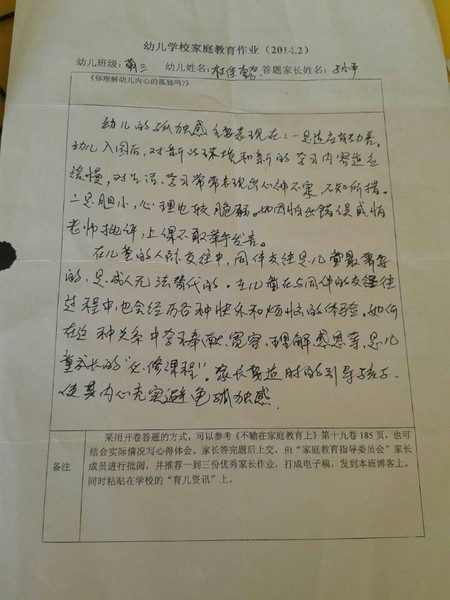 幼儿学校家庭教育作业（2014.2）
幼儿班级：萌三 幼儿姓名： 答题家长姓名：
《你理解幼儿内心的孤独吗?》
幼儿的孤独感主要表现在：一是适应能力差。
幼儿入园后，对新的环境和新的学习内容适应
缓慢，对生活、学习常常表现出心神不定，不知所措。
二是胆小，心理比较脆弱。如因怕出错误或怕
老师批评，上课不敢举手发言。
在儿童的人际交往中，同伴交往是儿童最需要
的，是成人无法替代的。在儿童在与同伴的交往
过程中，也会经历各种快乐和烦恼的体验。如何
在这种关系中学习奉献、宽容、理解、感恩等，是儿
童成长的“必修课程”。家长要适时的引导孩子，
使其内心充实避免孤独感。
备注
采用开卷答题的方式，可以参考《不输在家庭教育上》第十九卷 185 页，也可
结合实际情况写心得体会。家长答完题后上交，由“家庭教育指导委员会”家长
成员进行批阅，并推荐一到三份优秀家长作业，打成电子稿，发到本班博客上，
同时粘贴在学校的“育儿资讯”上。